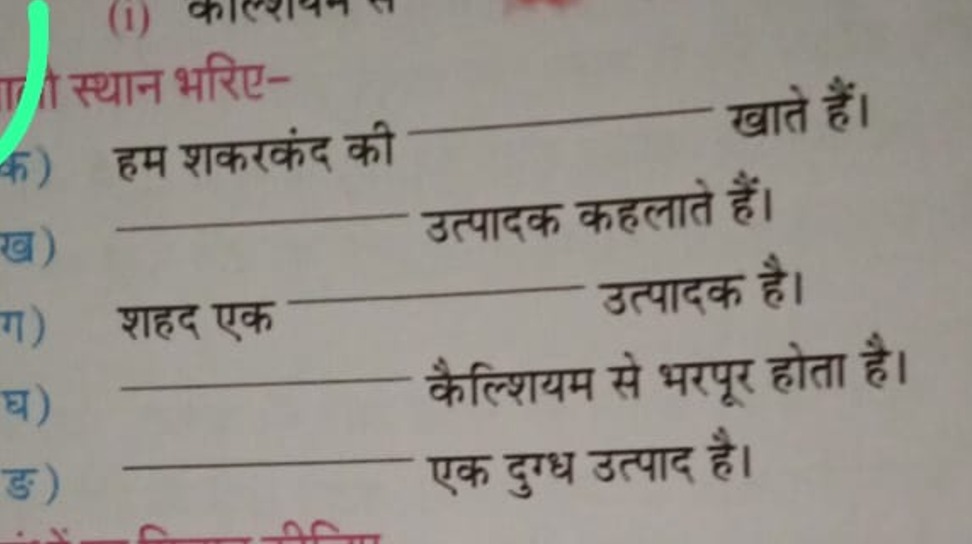 (i) कैल्शियम से
स्थान भरिए–
क) हम शकरकंद की ____________ खाते हैं।
ख) ____________ उत्पादक कहलाते हैं।
ग) शहद एक ____________ उत्पादक है।
घ) ____________ कैल्शियम से भरपूर होता है।
ङ) ____________ एक दुग्ध उत्पाद है।